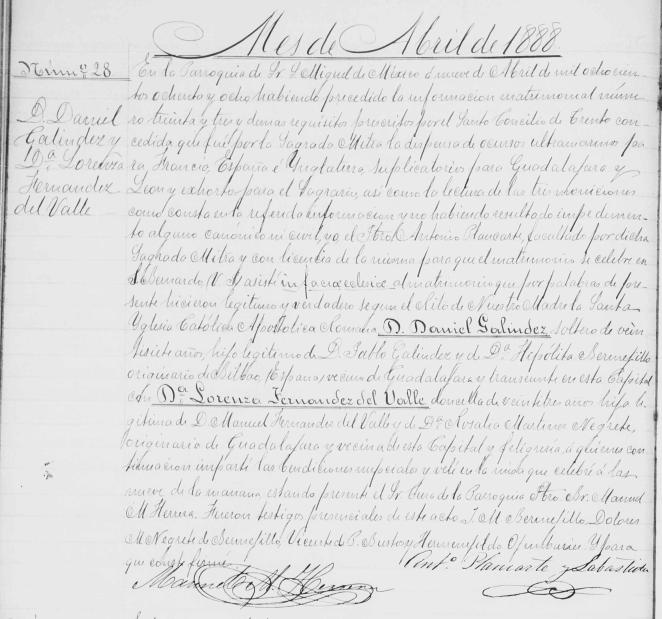 Mes de Abril de 1888
Núm.º 28
D. Daniel
Galindez y
D.ª Lorenza
Fernandez
del Valle
En la Parroquia de Sr. S. Miguel de México á nueve de Abril de mil ochocien
tos ochenta y ocho habiendo precedido la informacion matrimonial núme
ro treinta y tres y demas requisitos prescritos por el Santo Concilio de Trento con
cedida que fué por la Sagrada Mitra la dispensa de ocursos ultramarinos pa
ra, Francia, España é Inglaterra, suplicatorios para Guadalajara y
Leon y exhorto para el Sagrario, asi como la lectura de las tres moniciones
como consta en la referida informacion y no habiendo resultado impedimen
to alguno canónico ni civil, yo, el Pbro. Antonio Plancarte, facultado por dicha
Sagrada Mitra y con licencia de la misma para que el matrimonio se celebre en
S. Bernardo, asistí in facie eclesiæ al matrimonio que por palabras de pre
sente hicieron legitimo y verdadero segun el Rito de Nuestra Madre la Santa
Yglesia Católica Apostólica Romana D. Daniel Galindez, soltero de vein
tisiete años, hijo legitimo de D. Pablo Galindez y de D.ª Hepolita Bermejillo
originario de Bilbao, España, vecino de Guadalajara y transeunte en esta Capital
con D.ª Lorenza Fernandez del Valle doncella de veintitres años hija le
gitima de D. Manuel Fernandez del Valle y de D.ª Rosalia Martinez Negrete,
originaria de Guadalajara y vecina de esta Capital y feligresia, á quienes con
tinuacion impartí las bendiciones nupciales y velé en la misa que celebré á las
nueve de la mañana estando presente el Sr. Cura de la Parroquia Pbro. Br. Manuel
M. Herrera. Fueron testigos presenciales de este acto J. M. Bermejillo, Dolores
M. Negrete de Bermejillo, Vicente de P. Bustos y Hermenegildo. Y para
que conste firmé
Manuel M. Herrera
Ant.º Plancarte y Labastida